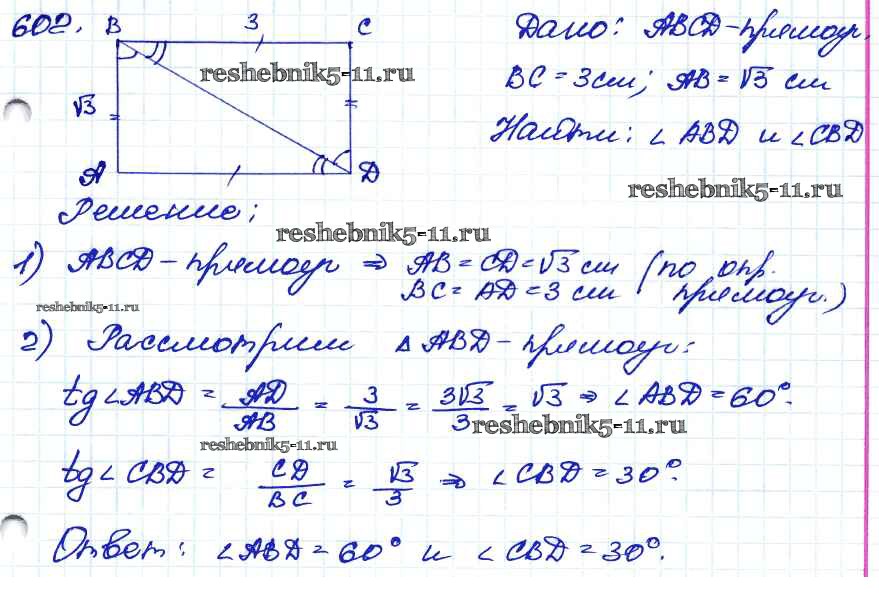 602. B 3 C
Дано: ABCD-прямоуг.
reshebnik5-11.ru
BC = 3см; AB = √3 см
√3
Найти: ∠ ABD и ∠CBD
A D
reshebnik5-11.ru
Решение;
reshebnik5-11.ru
1) ABCD - прямоуг ⇒ AB = CD = √3 см (по опр.
BC = AD = 3 см прямоуг.)
reshebnik5-11.ru
2) Рассмотрим △ ABD - прямоуг:
tg∠ABD = AD/AB = 3/√3 = 3√3/3 = √3 ⇒ ∠ABD = 60°.
reshebnik5-11.ru
reshebnik5-11.ru
tg∠ CBD = CD/BC = √3/3 ⇒ ∠CBD = 30°.
Ответ: ∠ABD = 60° и ∠CBD = 30°.